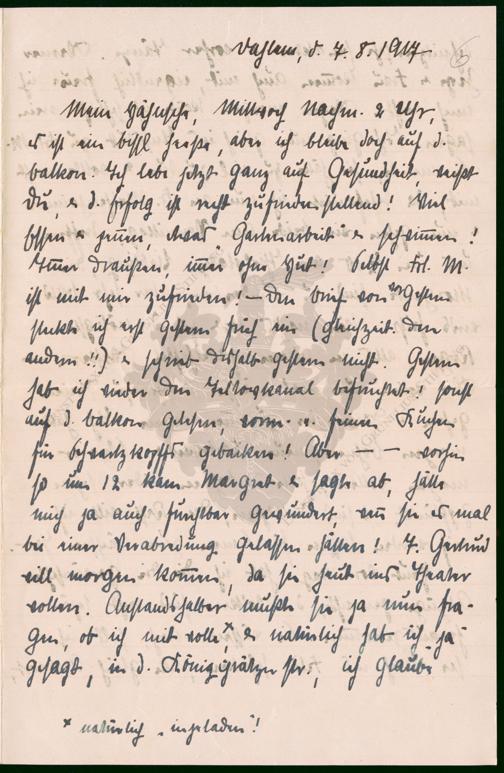 Dahlem, d. 7. 8. 1917
Mein Hähnsche, Mittwoch Nachm. 2 Uhr,
es ist ein bissl heiss, aber ich bleibe doch auf d.
balkon. Ich lebe jetzt ganz auf Gesundheit, weißt
Du, & d. Erfolg ist recht zufriedenstellend! Viel
Essen & etwas "Gartenarbeit" & schwimmen!
Immer draußen, immer ohne Hut! Selbst Frl. M.
ist mit mir zufrieden! — Den brief von Gestern
steckte ich erst gestern früh ein (gleichzeit. den
andern!!) & schrieb deshalb gestern nicht. Gestern
hab ich wieder den Teltowkanal befruchtet! sonst
auf d. balkon gelesen, vorm. feinen Kuchen
für Schwartzkopffs gebacken! Aber — — vorhin
so um 12 kam Margret & sagte ab, hätte
mich ja auch furchtbar gewundert, wenn sie es mal
bei einer Verabredung gelassen hätten! T. Gertrud
will morgen kommen, da sie heut ins Theater
wollen. Anstandshalber mußte sie ja nun fra-
gen, ob ich mit wollte*, & natürlich hab ich "ja"
gesagt, in d. Königgrätzer Str., ich glaube
* natürlich "ingeladen"!